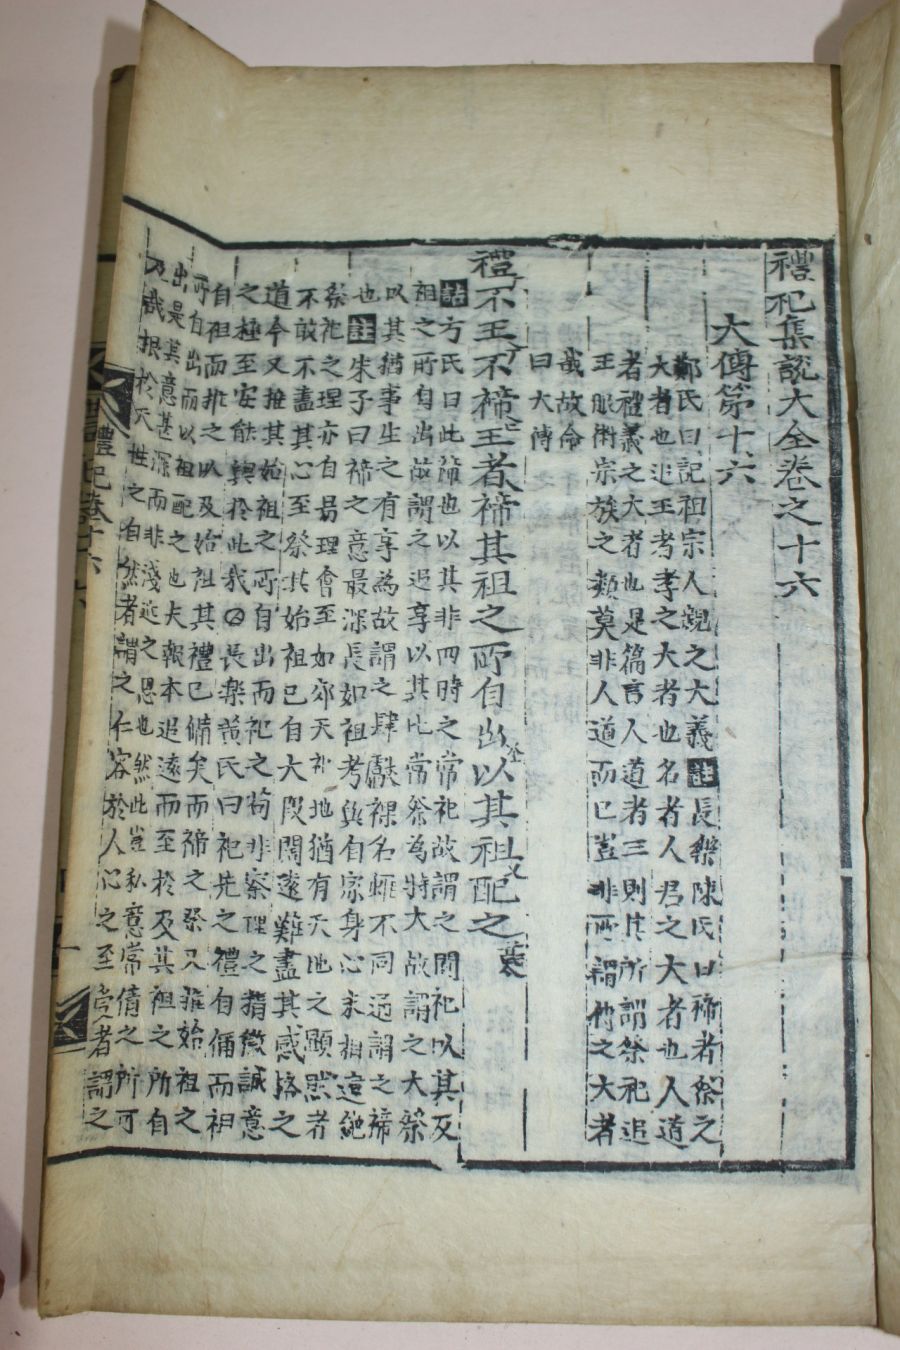 禮記集說大全卷之十六
大傳第十六
鄭氏曰記祖宗人親之大義註長樂陳氏曰禘者祭之
大者也追王者孝之大者也名者人君之大者也人道
者禮義之大者也是篇言人道者三則其所謂祭祀追
王服術宗族之類莫非人道而已豈非所謂他之大者
哉故命
曰大傳
禮不王不禘王者禘其祖之所自出以其祖配之
詁方氏曰此禘也以其非四時之常祀故謂之間祀以其及
祖之所自出故謂之追享以其比常祭為特大故謂之大祭
以其猶事生之有享焉故謂之肆獻祼名雖不同通謂之禘
也註朱子曰禘之意最深長如祖考與自家身心未相遼絶
祭祀之理亦自易理會至如郊天祀地猶有天地之顯然者
不敢不盡其心至祭其始祖已自大段闊遠難盡其感格之
道今又推其始祖之所自出而祀之苟非察理之精微誠意
之極至安能與於此哉○長樂黃氏曰祀先之禮自禰而祖
自祖而推之以及始祖其禮已備矣而禘之祭又推始祖之
所自出而以祖配之也夫報本追遠而至於及其祖之所自
出是其意甚深而非淺近之思也然此豈私意常情之所可
及哉根於天性之自然者謂之仁容於人心之至 者謂之
禮記卷十六
一